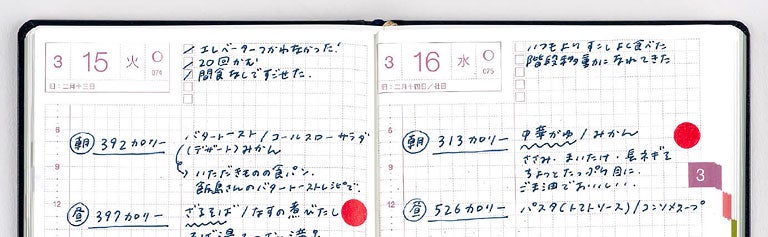 3 15 火 074
旧:二月十三日
エレベーターつかわなかった!
20回かむ
間食なしですごせた.
6
朝 392カロリー
バタートースト/コールスローサラダ
(デザート)みかん
9
いただきものの食パン.
飯島さんのバタートーストレシピで.
12
昼 397カロリー
ざるそば/なすの煮びたし
3 16 水 075
旧:二月十四日/社日
いつもよりすこし多く食べた
階段移動になれてきた
6
朝 313カロリー
中華がゆ/みかん
ささみ、まいたけ、長ネギを
ちょっとたっぷり目に.
ごま油でおいしい.
9
3
12
昼 526カロリー
パスタ(トマトソース)/コンソメスープ